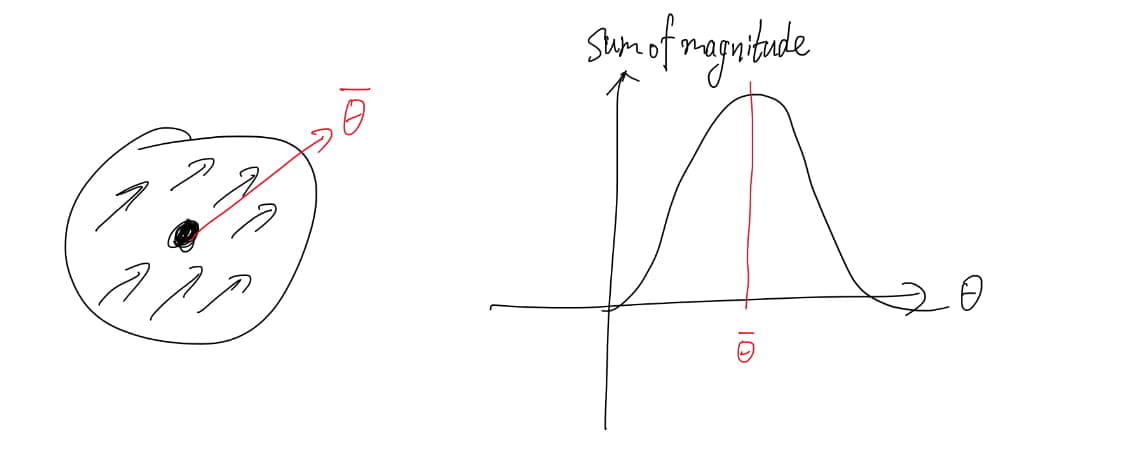 sum of magnitude
θ̅
θ
θ̅